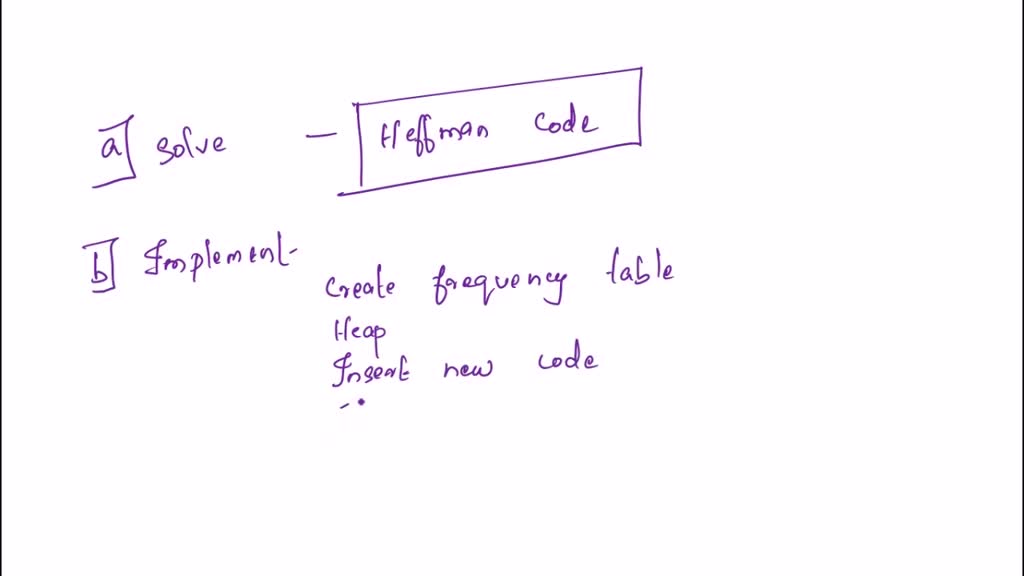 a] solve - Heffman code
b] Implement-
create frequency table
Heap
Insert new code